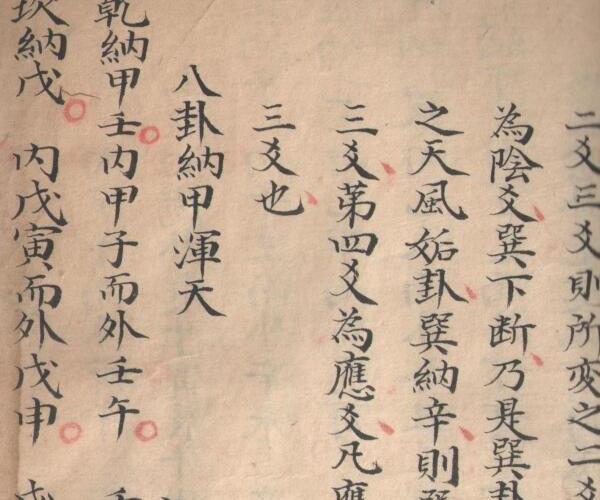 二爻三爻則所变之二爻
為陰爻巽下断乃是巽卦
之天風姤卦巽納辛則
三爻第四爻為應爻凡應
三爻也
八卦納甲渾天
乾納甲壬内甲子而外壬午
坎納戊 内戊寅而外戊申